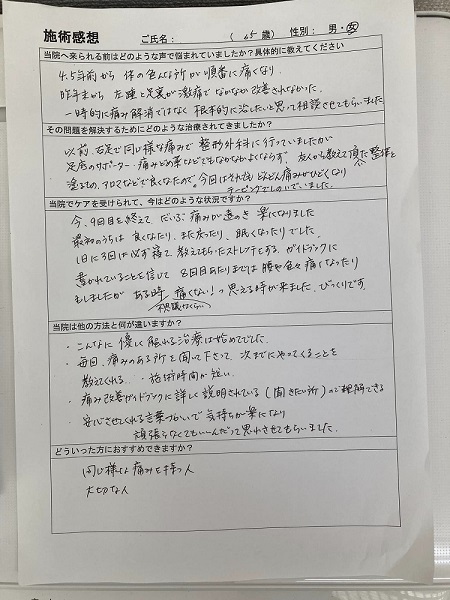 施術感想 ご氏名: ( 45 歳) 性別: 男・女
当院へ来られる前はどのような声で悩まれていましたか?具体的に教えてください
4.5年前から 体の色んな所が順番に痛くなり
昨年末から 左踵と足裏が激痛でなかなか改善されなかった。
一時的に痛み解消ではなく 根本的に治したいと思って相談させてもらいました
その問題を解決するためにどのような治療されてきましたか?
以前、右足で同じ様な痛みで 整形外科に行っていましたが
足底のサポーター・痛みどめの薬などでもなかなかよくならず、友人から教えて頂いた整体と
塗るもの、アロマなどで良くなたので、今回はそれでもどんどん痛みがひどくなり
テーピングでしのいでいました。
当院でケアを受けられて、今はどのような状況ですか?
今、9回目を終えて だいぶ 痛みが遠のき 楽になりました
最初のうちは 良くなたり、また戻ったり、眠くなったりでした。
1日に3回は必ず寝て、教えてもらったストレッチをする、ガイドブックに
書かれていることを信じて 8回目あたりまでは 腰や色々痛くなったり
もしましたが ある時 痛くない!っ思える時が来ました、びっくりです。
不思議なくらい
当院は他の方法と何が違いますか?
・こんなに優しく触れる治療は始めてでした。
・毎回、痛みのある所を聞いて下さって、次までにやってくることを
教えてくれる ・施術時間が短い
・痛み改善ガイドブックに詳しく説明されている(聞きたい所)ので理解できる
・安心させてくれる言葉づかいで気持ちが楽になり
頑張らなくてもいいんだって思わせてもらいました。
どういった方におすすめできますか?
同じ様な痛みを持つ人
大切な人